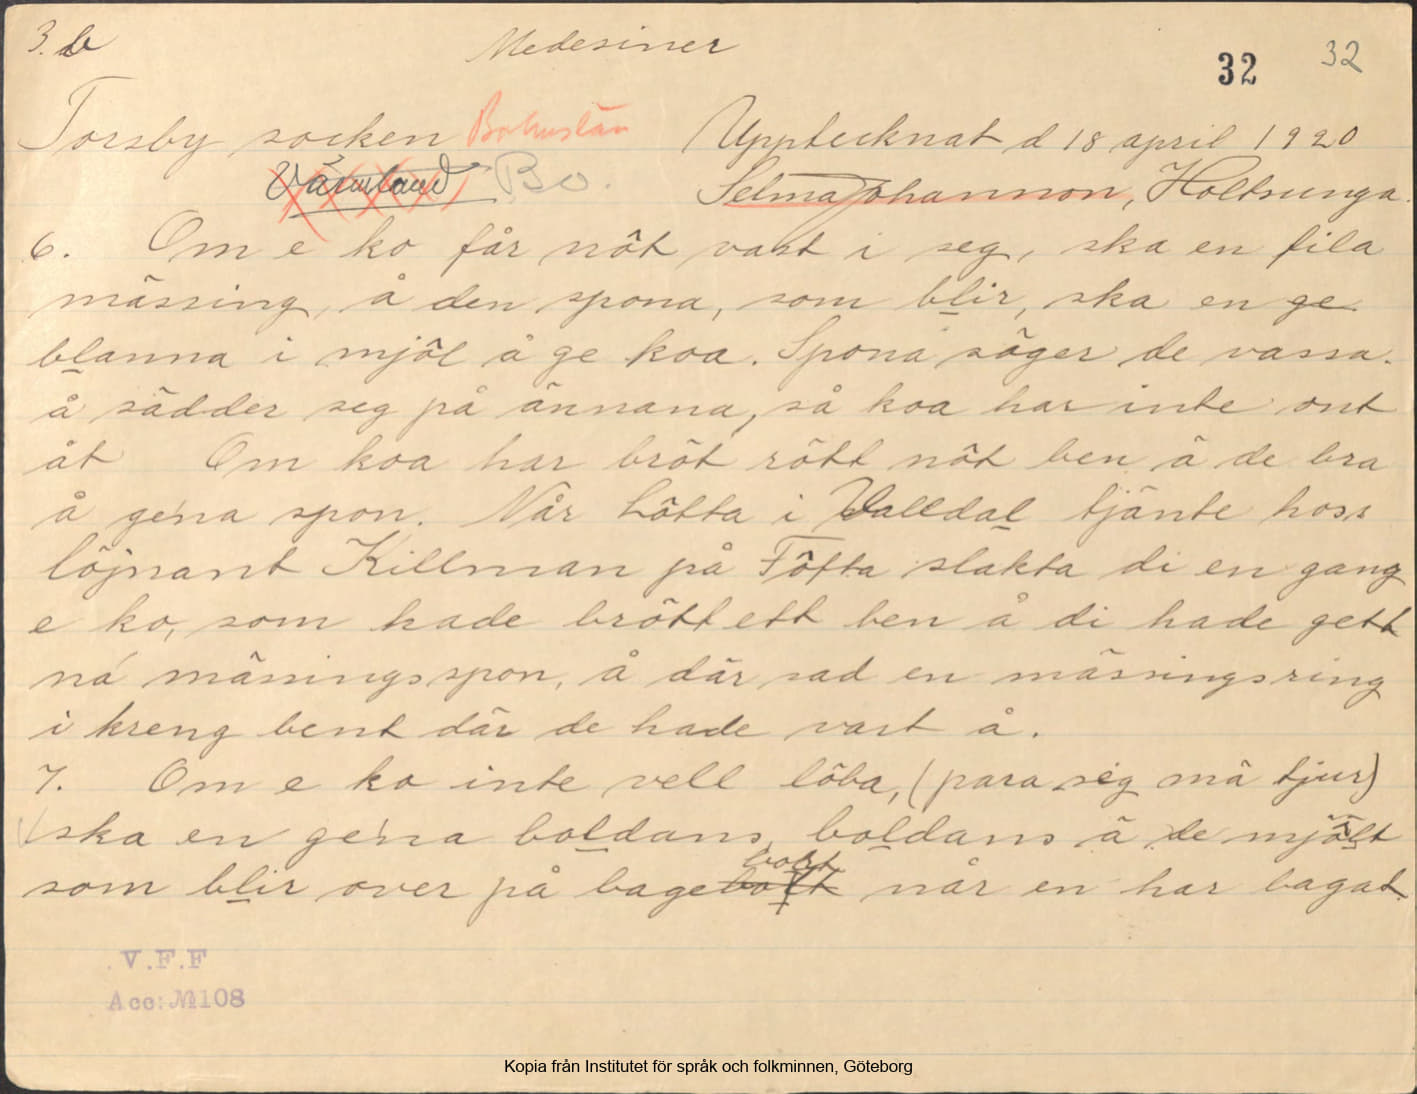 3. b
Medesiner
32 32
Torsby socken Bohuslän Upptecknat d 18 april 1920
Värmland Bo. Selma Johannson, Holtsunga.
6. Om e ko får nôt vast i seg, ska en fila
mässing, å den spona, som blir, ska en ge
blanna i mjôl å ge koa. Spona säger de vassa.
å sädder seg på ännana, så koa har inte ont
åt Om koa har brôt rôtt nôt ben ä de bra
å gena spon. Når Lôtta i Valldal tjänte hoss
löjnant Killman på Tôfta slakta di en gang
e ko, som hade brôtt ett ben å di hade gett
na mässingsspon, å där sad en mässingsring
i kreng bent där de hade vart å.
7. Om e ko inte vell löba, (para seg mä tjur)
ska en gena boldans, boldans ä de mjôlt
som blir over på bagebort bort når en har bagat.
V.F.F
Acc: № 108
Kopia från Institutet för språk och folkminnen, Göteborg